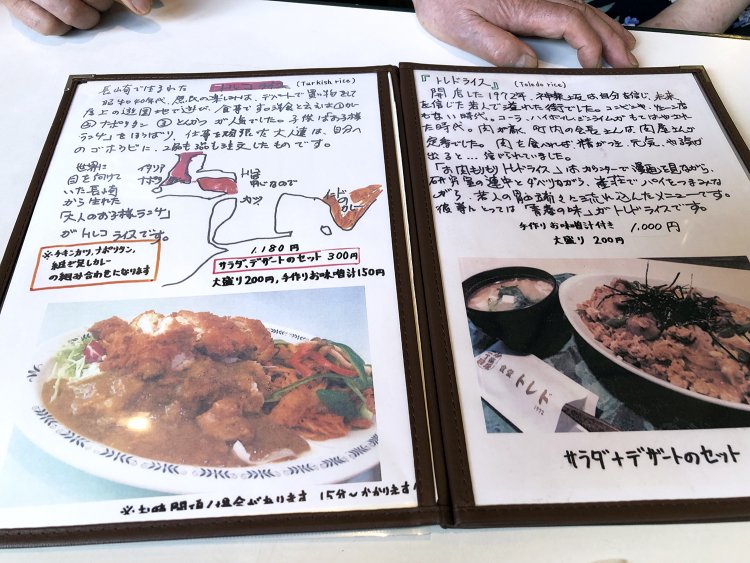 長崎で生まれた トルコライス (Turkish rice)
昭和40年代、庶民の楽しみは、デパートで買い物をして
屋上の遊園地で遊び、食事です。洋食と言えば①カレー
②ナポリタン ③とんかつが人気でした。子供はお子様
ランチをほうばり、仕事を頑張った大人達は、自分への
ゴホウビに、2品も3品も注文したものです。
世界に
目を向けて
いた長崎
から生れた
「大人のお子様ランチ」
がトルコライスです。
イタリア
ナポリ
トルコ
カツ
インドのカレー
※チキンカツ、ナポリタン、
継ぎ足しカレー
の組み合わせになります
1,180円
サラダ、デザートのセット 300円
大盛り200円、手作りお味噌汁150円
※お時間頂く場合があります 15分〜かかります
『トレドライス』 (Toledo rice)
開店した1972年、神楽坂は自分を信じ、未来
を信じた若人で溢れた街でした。コンビニや、
もない時代。コーラ、ハイボール、ジンライムがもてはやされ
た時代。肉が
定番でした。肉を食べれば精がつき、元気、やる気が
出ると…信じられていました。
「お肉もりもりトレドライス」は、カウンターで漫画を見ながら、
研究室の連中とダベリながら、雀荘でパイをつまみな
がら、若人の胃の
彼等にとっては「青春の味」がトレドライスです。
手作りお味噌汁付き 1,000円
大盛り 200円
トレド
1972
サラダ+デザートのセット